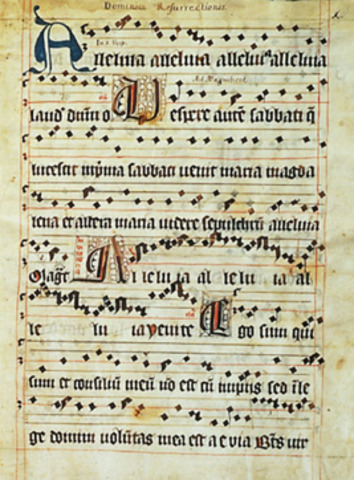 Dominica Resurrectionis
Alleluia alleluia alleluia alleluia
laud dnm o Ad Magnificat Vespere autē sabbati q̄
lucescit in prima sabbati venit maria magda
lena et altera maria videre sepulchrū alleluia
Alleluia alleluia al
le lu ia venite Ego sum qui
sum et consiliū meū nō est cū impiis sed in le
ge domini voluntas mea est a e via Bt̄s vir